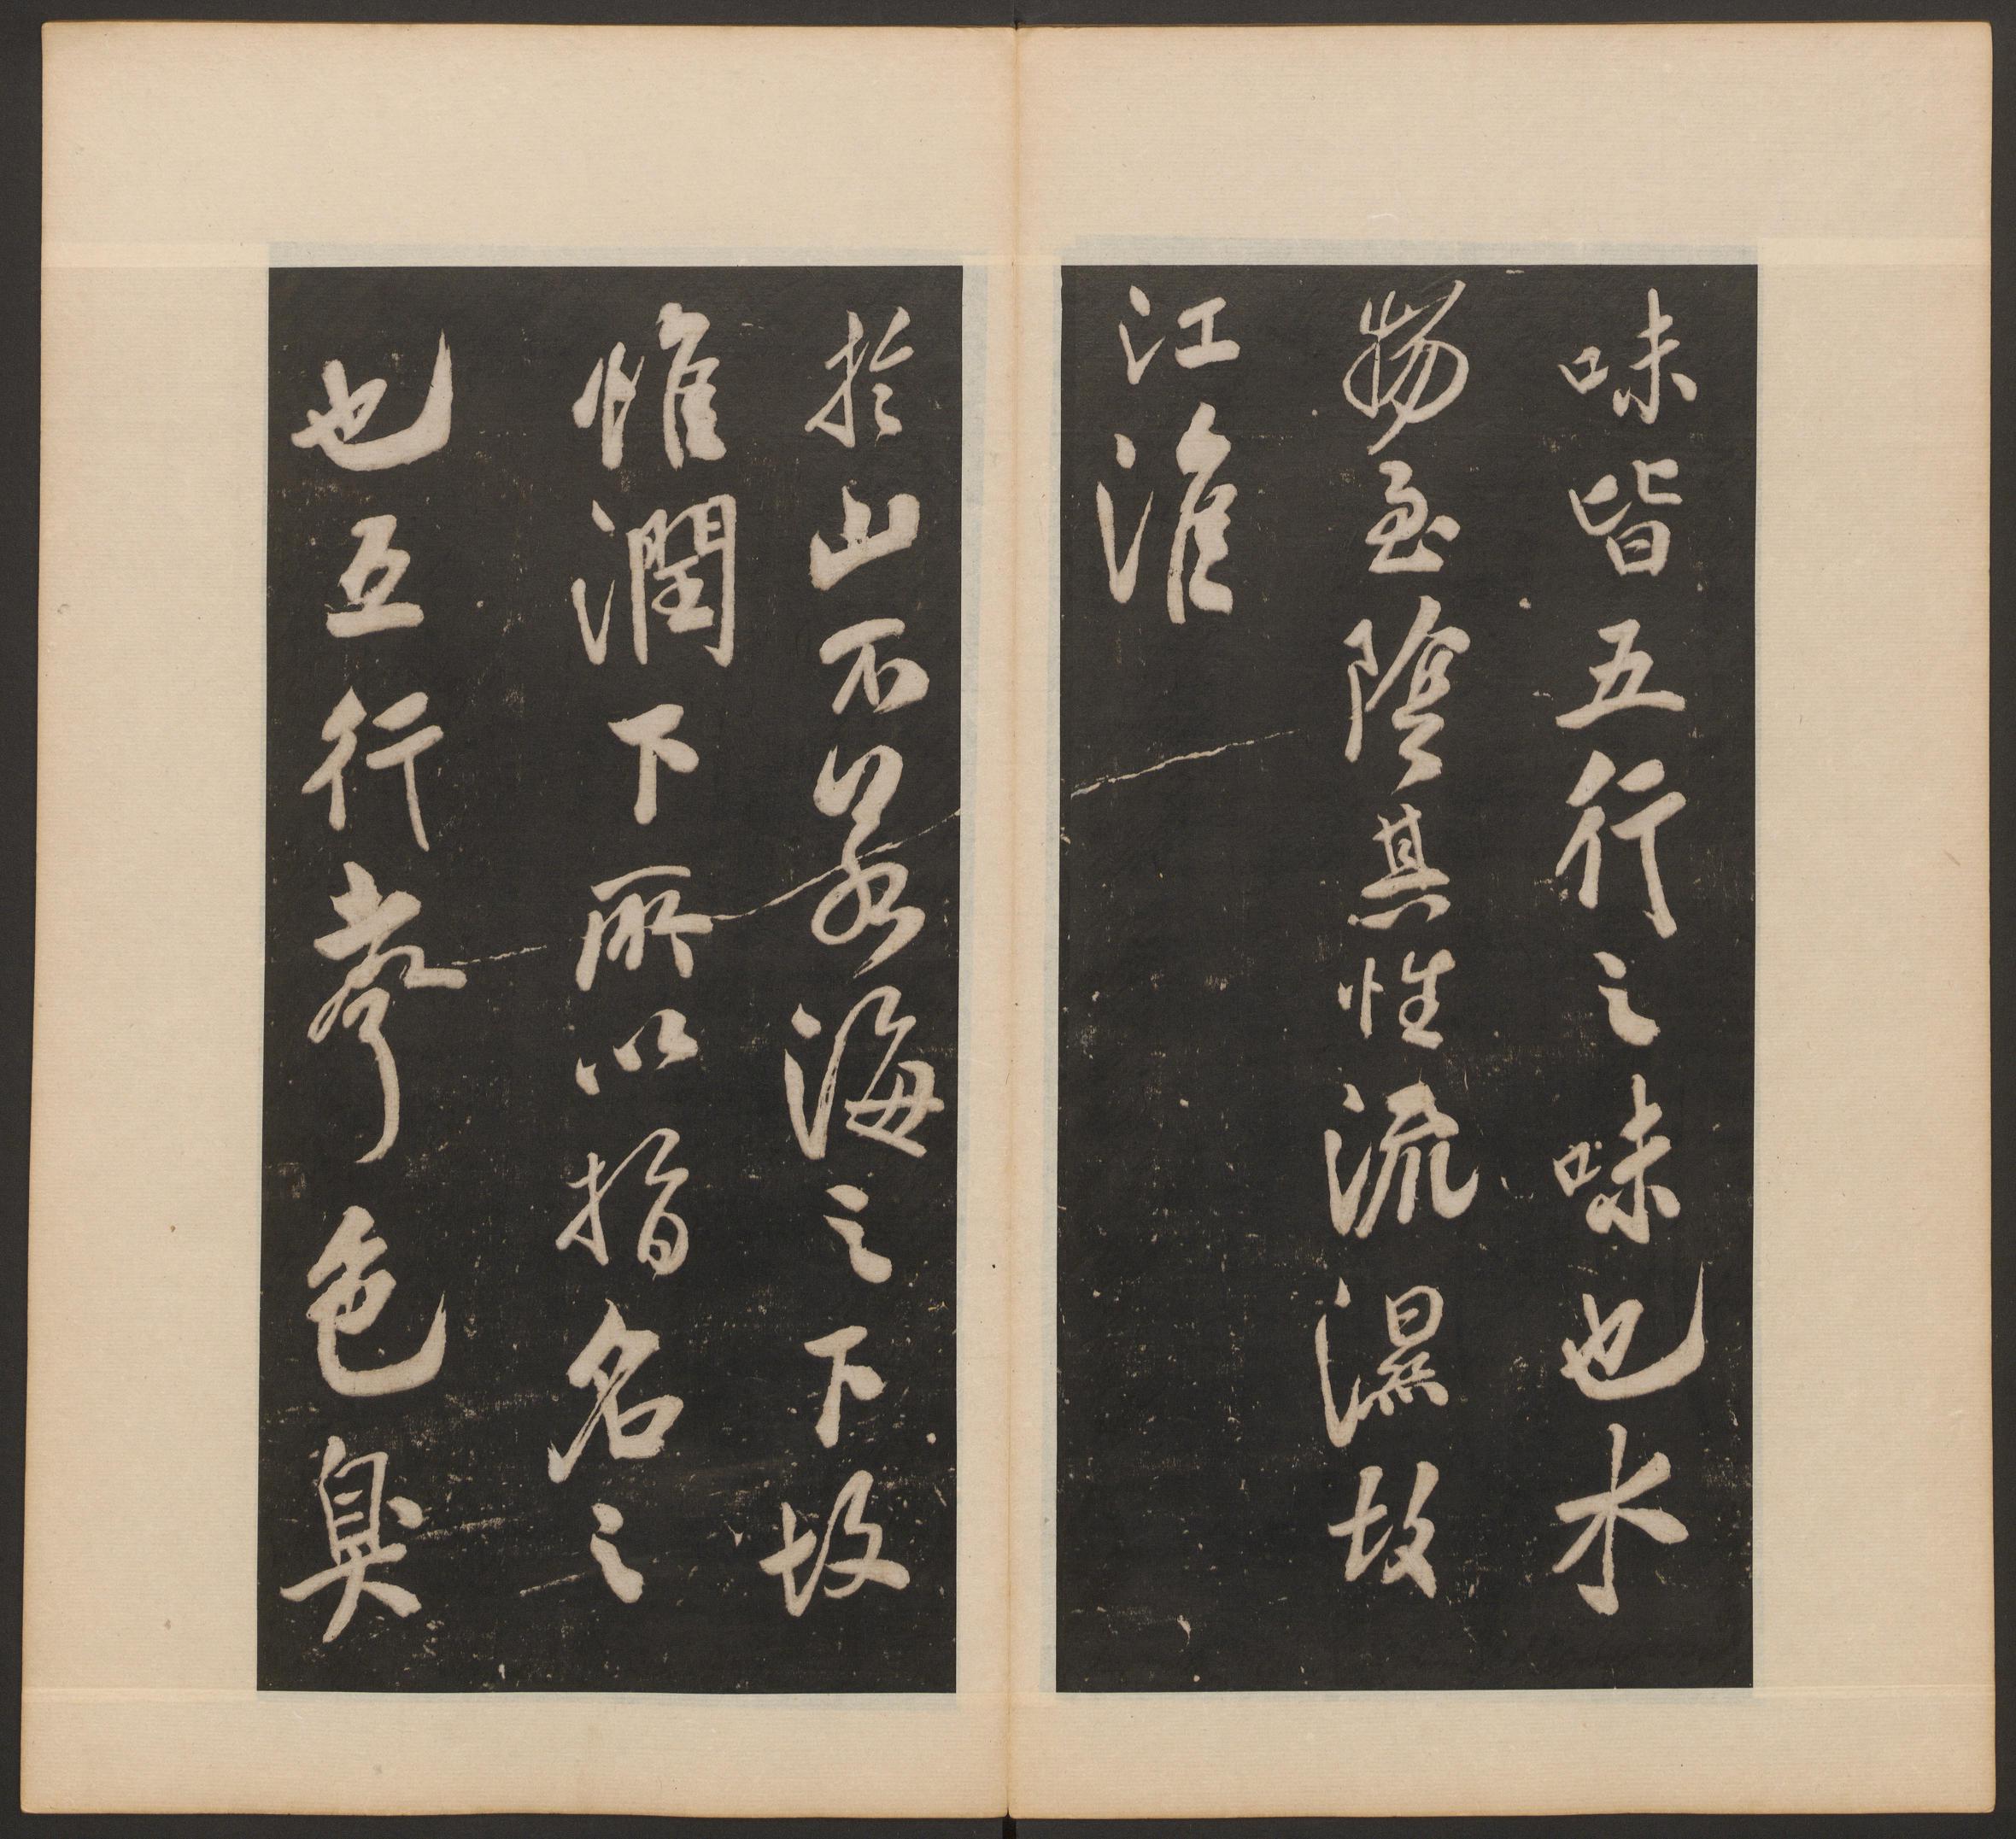 味皆五行之味也水
物至陰其性流濕故
江淮
於山不海之下故
惟潤下所以指名之
也五行聲色臭